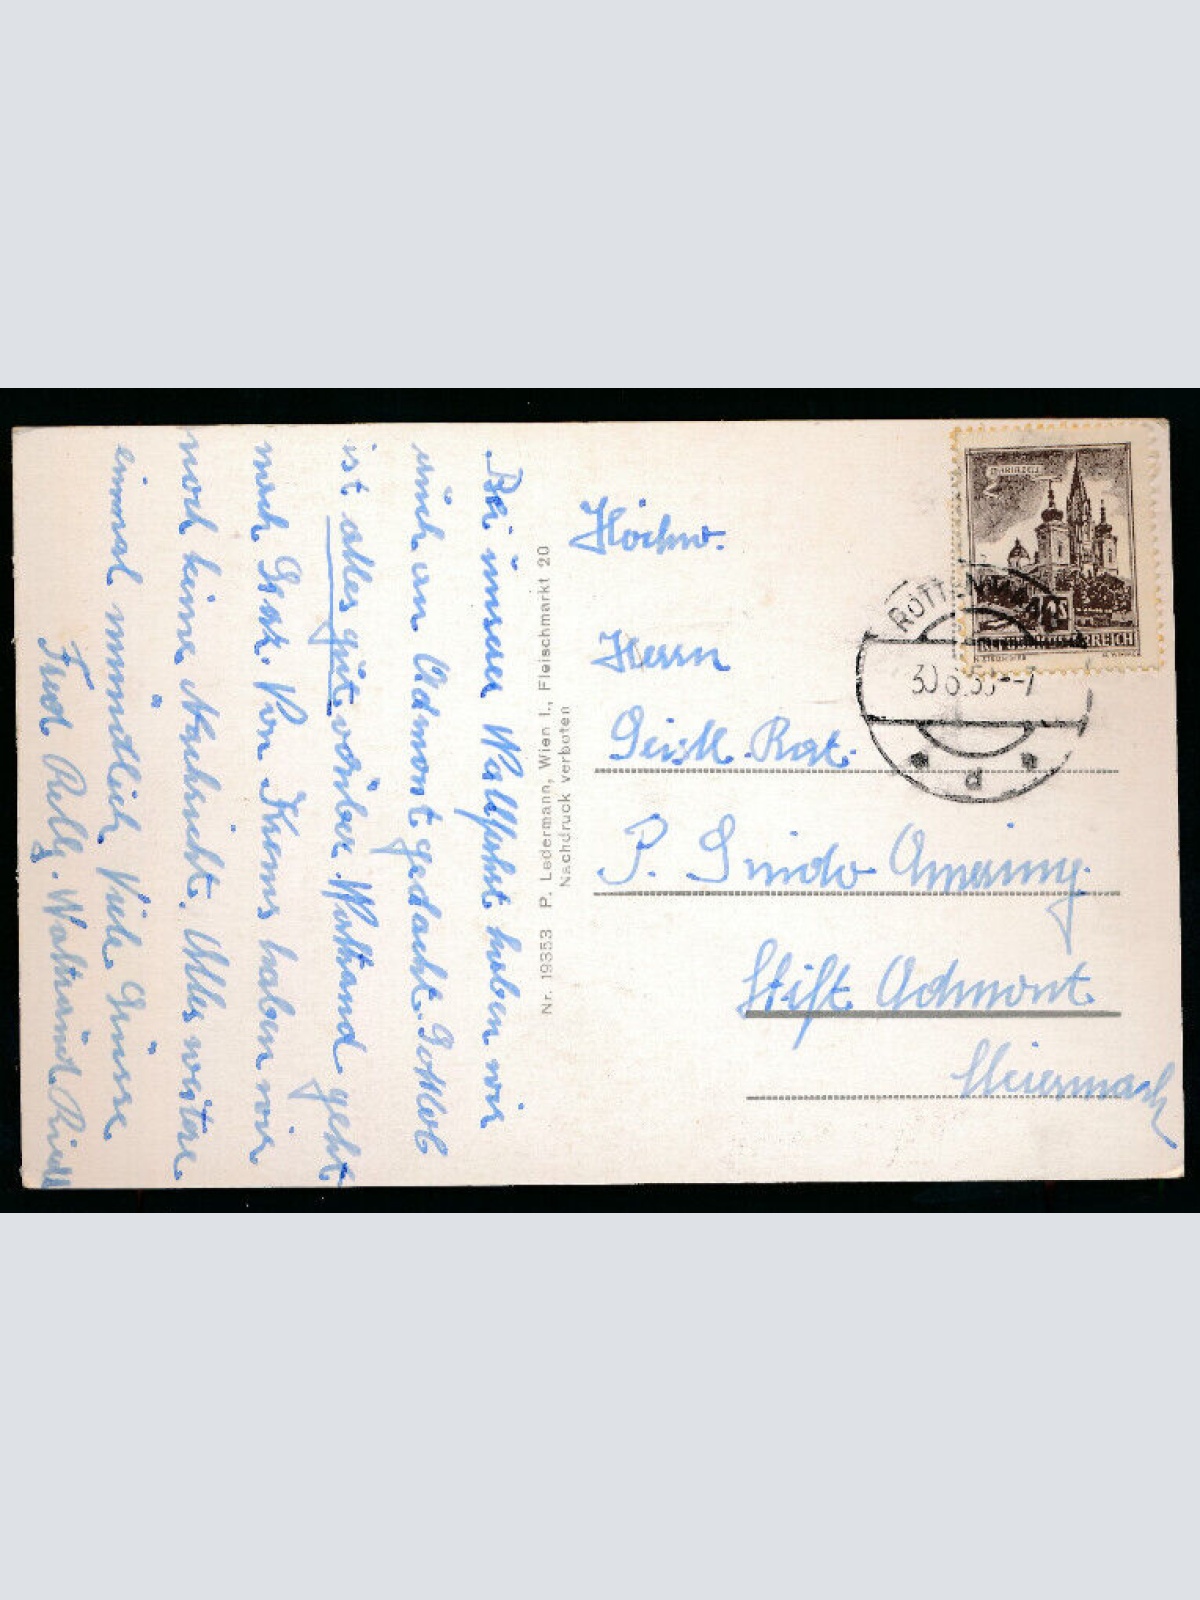 Bei unserer Wallfahrt haben wir
auch an Admont gedacht. Gottlob
ist alles gut vorüber. Waltraud geht
nach Graz. Von Krems haben wir
noch keine Nachricht. Alles weitere
einmal mündlich. Viele Grüsse
Fred Waltraud
Nr. 19353 P. Ledermann, Wien I., Fleischmarkt 20
Nachdruck verboten
Hochw.
Herrn
Geistl. Rat.
P. Guido
Stift Admont
Steiermark
MARIAZELL
REPUBLIK ÖSTERREICH
ROTT
d